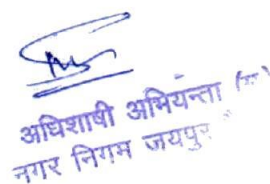 अधिशाषी अभियन्ता
नगर निगम जयपुर